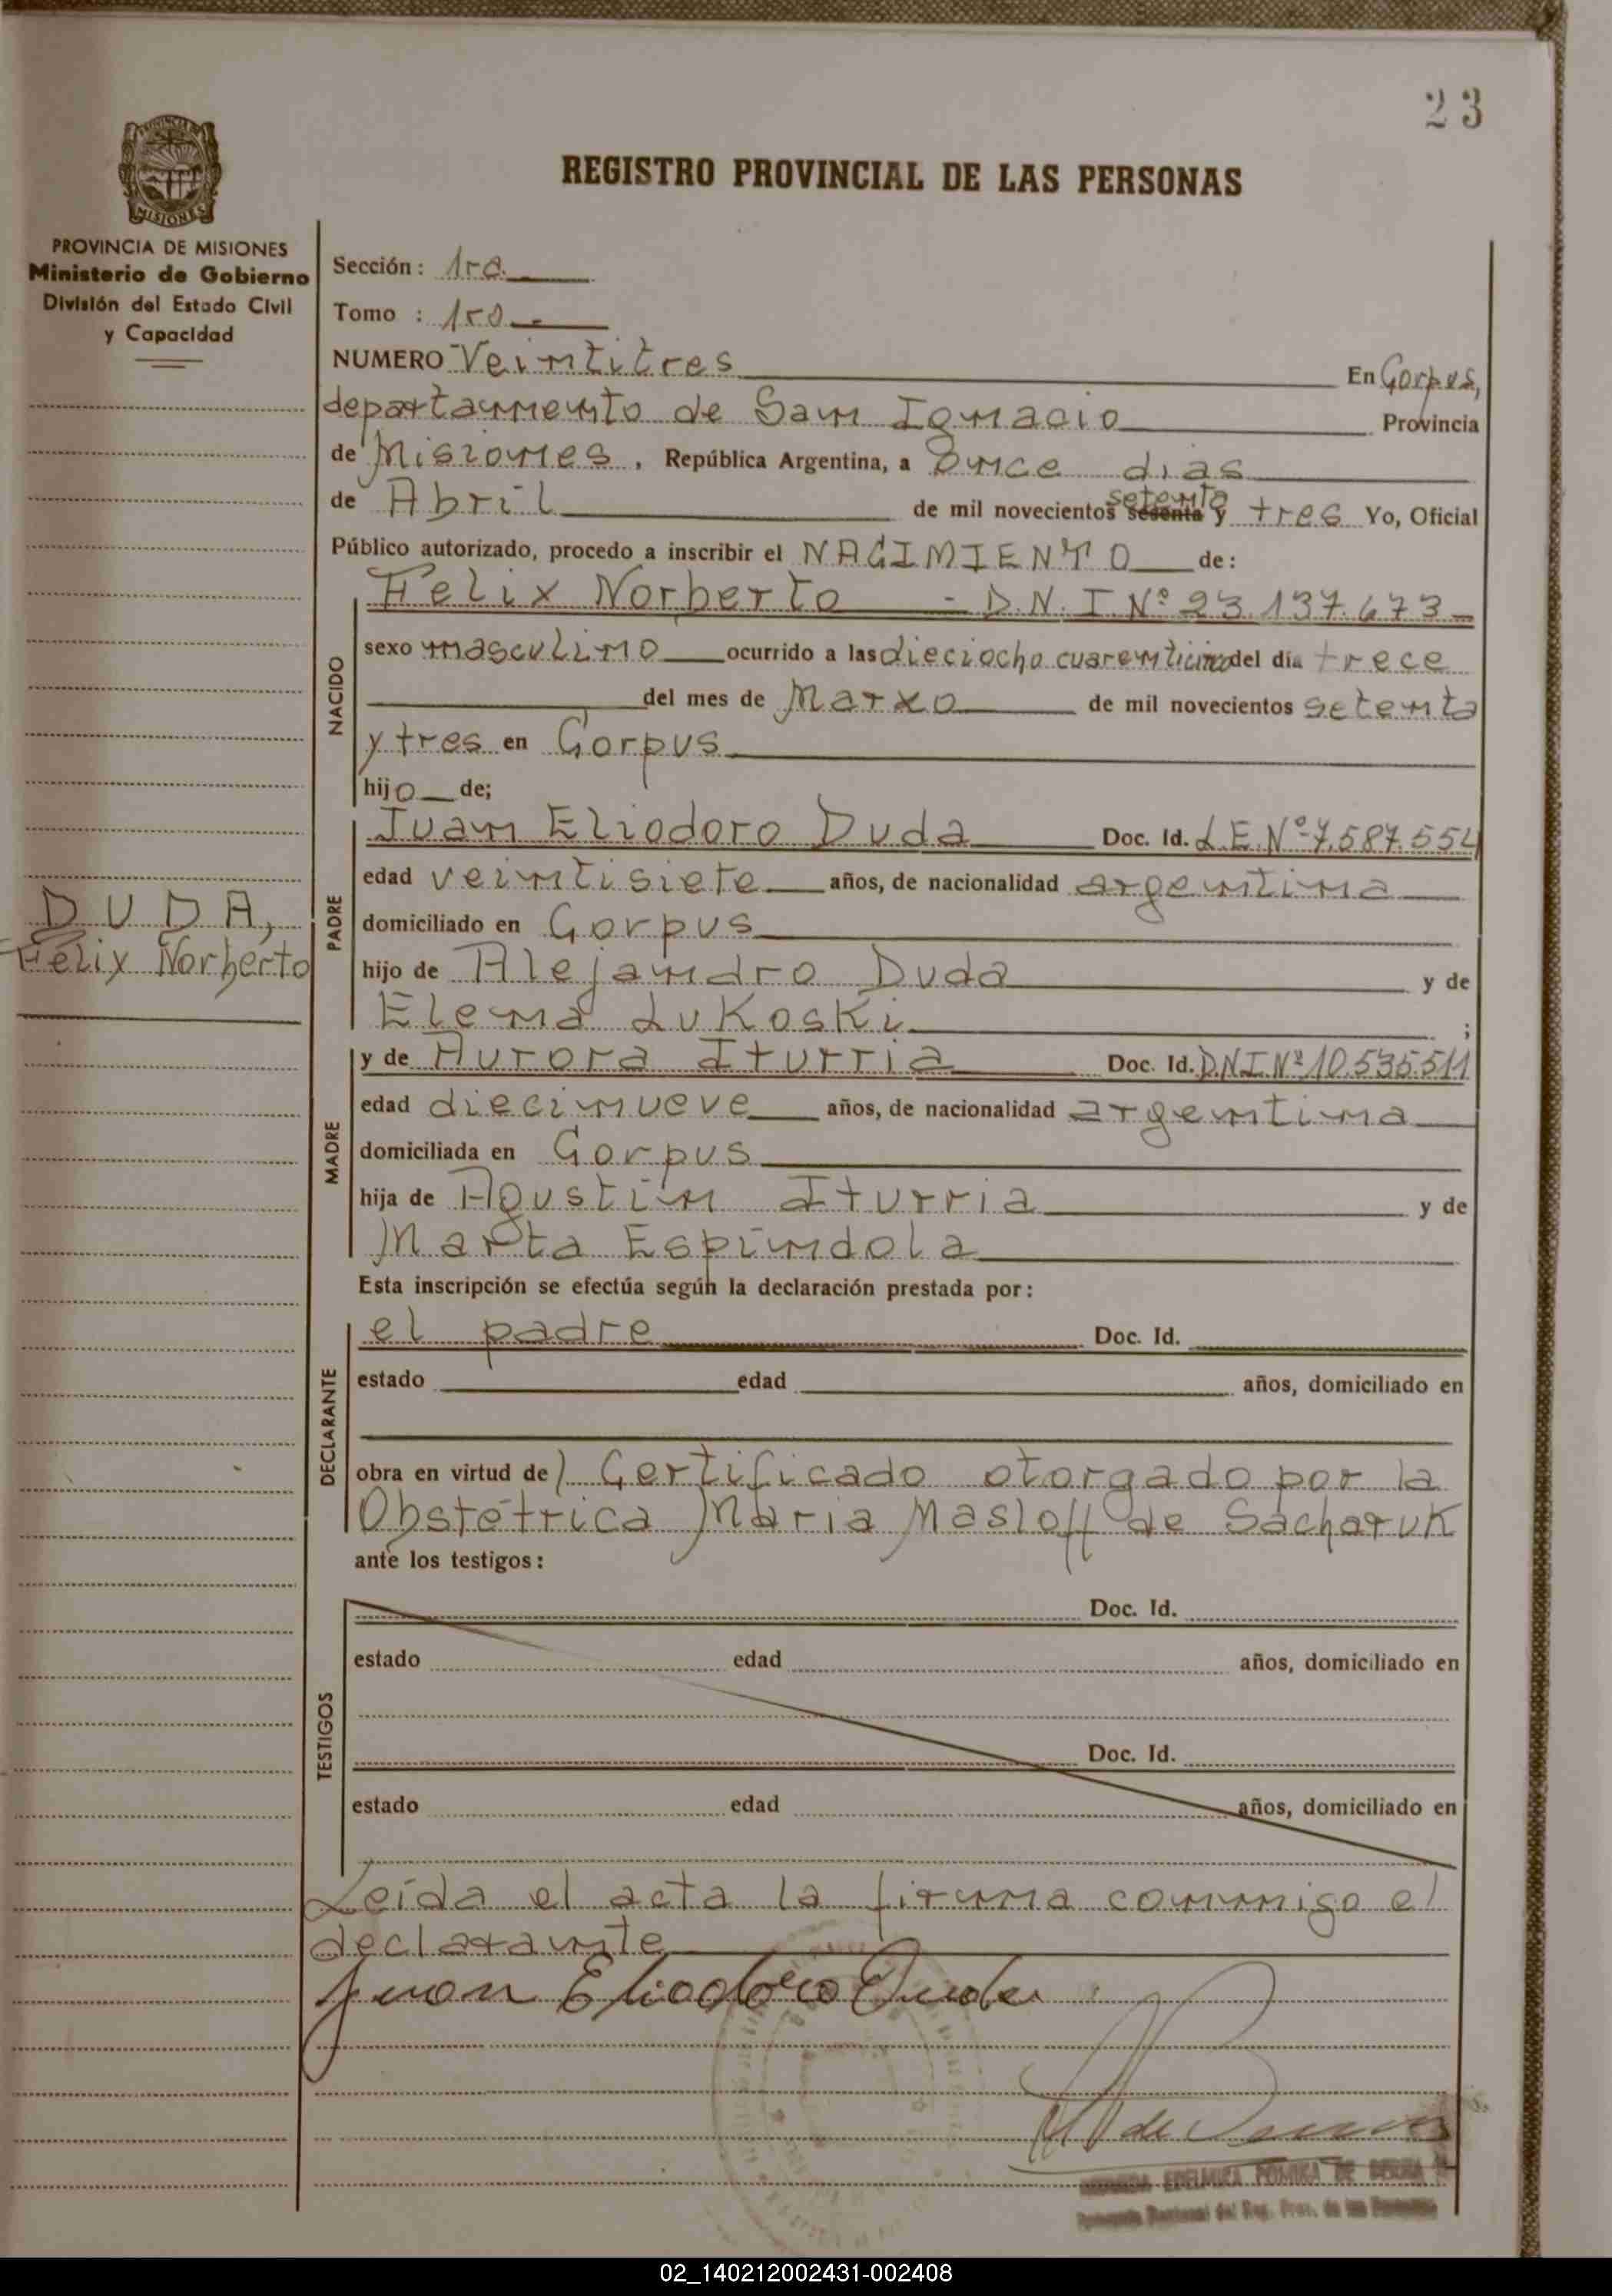 23
REGISTRO PROVINCIAL DE LAS PERSONAS
MISIONES
PROVINCIA DE MISIONES
Ministerio de Gobierno
División del Estado Civil
y Capacidad
Sección: 1ra.
Tomo : 1ro.-
NUMERO Veintitres En Corpus,
departamento de San Ignacio Provincia
de Misiones, República Argentina, a Once dias
de Abril de mil novecientos setenta sesenta y tres Yo, Oficial
Público autorizado, procedo a inscribir el NACIMIENTO de:
NACIDO
Felix Norberto - D.N.I.Nº 23.137.673
sexo masculino ocurrido a las dieciocho cuarenticinco del día trece
del mes de Marzo de mil novecientos setenta
y tres en Corpus
hijo de;
PADRE
Juan Eliodoro Duda Doc. Id. L.E.Nº 7.587.554
edad veintisiete años, de nacionalidad argentina
DUDA,
Felix Norberto
domiciliado en Corpus
hijo de Alejandro Duda y de
Elena Lukoski ;
MADRE
y de Aurora Iturria Doc. Id. D.N.I.Nº 10.535.511
edad diecinueve años, de nacionalidad argentina
domiciliada en Corpus
hija de Agustin Iturria y de
Marta Espindola
Esta inscripción se efectúa según la declaración prestada por:
DECLARANTE
el padre Doc. Id.
estado edad años, domiciliado en
obra en virtud de) Certificado otorgado por la
Obstétrica Maria Masloff de Sacharuk
ante los testigos:
TESTIGOS
Doc. Id.
estado edad años, domiciliado en
Doc. Id.
estado edad años, domiciliado en
Leída el acta la firma conmigo el
declarante
Juan Eliodoro Duda
02_140212002431-002408